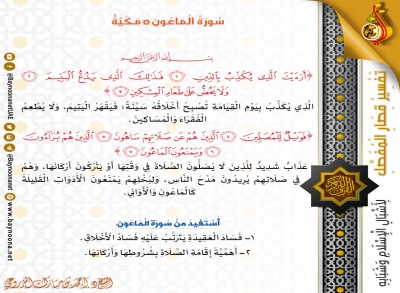 سُورَةُ المَاعُونِ * مَكِّيَّةٌ
بِسْمِ اللهِ الرَّحْمَنِ الرَّحِيمِ
﴿أَرَءَيْتَ الَّذِي يُكَذِّبُ بِالدِّينِ ١ فَذَلِكَ الَّذِي يَدُعُّ الْيَتِيمَ ٢
وَلَا يَحُضُّ عَلَى طَعَامِ الْمِسْكِينِ ٣﴾
الَّذِي يُكَذِّبُ بِيَوْمِ القِيَامَةِ تُصْبِحُ أَخْلَاقُهُ سَيِّئَةً؛ فَيَقْهَرُ الْيَتِيمَ، وَلَا يُطْعِمُ
الْفُقَرَاءَ وَالْمَسَاكِينَ.
﴿فَوَيْلٌ لِلْمُصَلِّينَ ٤ الَّذِينَ هُمْ عَنْ صَلَاتِهِمْ سَاهُونَ ٥ الَّذِينَ هُمْ يُرَاءُونَ
٦ وَيَمْنَعُونَ الْمَاعُونَ ٧﴾
عَذَابٌ شَدِيدٌ لِلَّذِينَ لَا يُصَلُّونَ الصَّلَاةَ فِي وَقْتِهَا أَوْ يَتْرُكُونَ أَرْكَانَهَا، وَهُمْ
فِي صَلَاتِهِمْ يُرِيدُونَ مَدْحَ النَّاسِ، وَلِبُخْلِهِمْ يَمْنَعُونَ الْأَدَوَاتِ الْقَلِيلَةَ
كَالمَاعُونِ وَالْأَوَانِي.
أَسْتَفِيدُ مِنْ سُورَةِ المَاعُونِ:
١- فَسَادُ العَقِيدَةِ يَتَرَتَّبُ عَلَيْهِ فَسَادُ الْأَخْلَاقِ.
٢- أَهَمِّيَّةُ إِقَامَةِ الصَّلَاةِ بِشُرُوطِهَا وَأَرْكَانِهَا.
تَفْسِيرُ قِصَارِ المُفَصَّلِ
لِأَشْبَالِ الإِسْلَامِ وَشَبَابِهِ
@BaynoonanetUAE
@Baynoonanet
www.baynoona.net